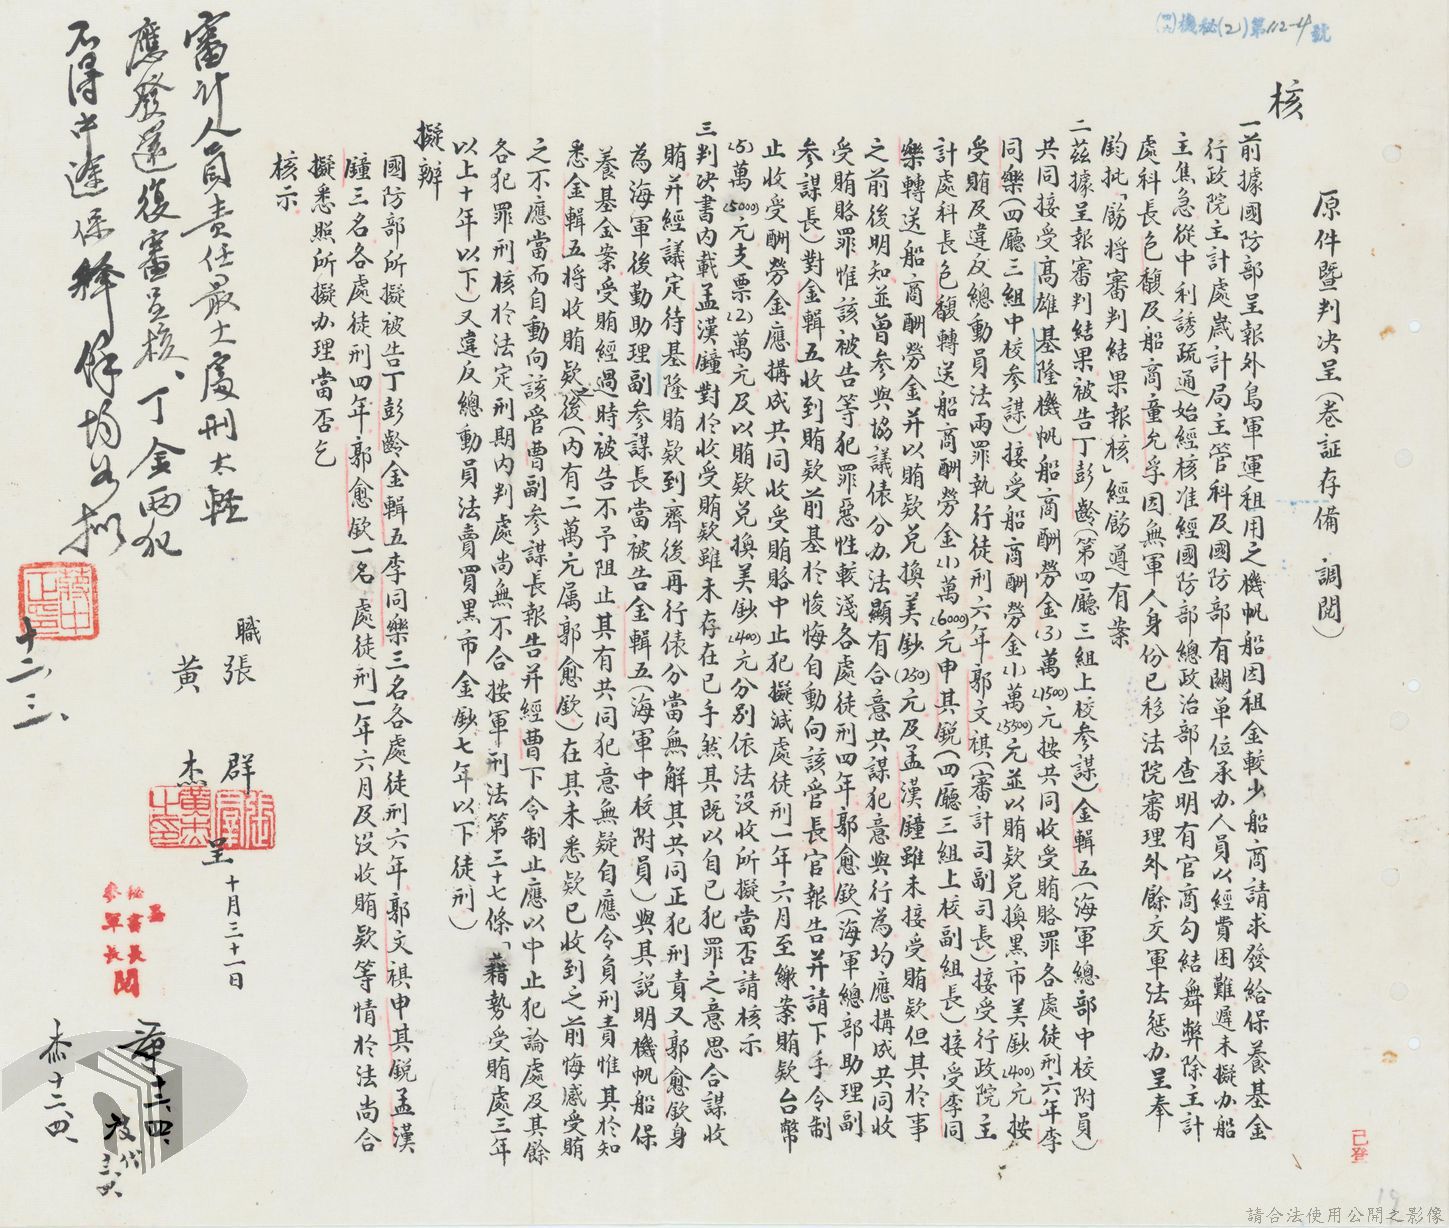 ㈣機秘(2)第112-4號
原件暨判決呈（卷証存備　調閱）
核
一前據國防部呈報外島軍運租用之機帆船因租金較少船商請求發給保養基金
行政院主計處歲計局主管科及國防部有關單位承办人員以經費困難遲未擬办船
主焦急從中利誘疏通始經核准經國防部總政治部查明有官商勾結舞弊除主計
處科長色馥及船商童允孚因無軍人身份已移法院審理外餘交軍法懲办呈奉
鈞批「飭將審判結果報核」經飭遵有案
二茲據呈報審判結果被告丁彭齡（第四廳三組上校參謀）金輯五（海軍總部中校附員）
共同接受高雄基隆機帆船商酬勞金(3)萬(1500)元按共同收受賄賂罪各處徒刑六年李
同樂（四廳三組中校參謀）接受船商酬勞金(1)萬(5500)元並以賄欵兑換黑市美鈔(400)元按
受賄及違反總動員法兩罪執行徒刑六年郭文祺（審計司副司長）接受行政院主
計處科長色馥轉送船商酬勞金(1)萬(6000)元申其銳（四廳三組上校副組長）接受李同
樂轉送船商酬勞金并以賄欵兑換美鈔(250)元及孟漢鐘雖未接受賄欵但其於事
之前後明知並曾參與協議俵分办法顯有合意共謀犯意與行為均應搆成共同收
受賄賂罪惟該被告等犯罪惡性較淺各處徒刑四年郭愈欽（海軍總部助理副
參謀長）對金輯五收到賄欵前基於悛悔自動向該管長官報告并請下手令制
止收受酬勞金應搆成共同收受賄賂中止犯擬減處徒刑一年六月至繳案賄欵台幣
(5)萬(5000)元支票(2)萬元及以賄欵兑換美鈔(400)元分別依法没收所擬當否請核示
三判决書内載孟漢鐘對於收受賄欵雖未存在已手然其既以自已犯罪之意思合謀收
賄并經議定待基隆賄欵到齊後再行俵分當無解其共同正犯刑責又郭愈欽身
為海軍後勤助理副參謀長當被告金輯五（海軍中校附員）與其説明機帆船保
養基金案受賄經過時被告不予阻止其有共同犯意無疑自應令負刑責惟其於知
悉金輯五將收賄欵後（内有二萬元屬郭愈欽）在其未悉欵已收到之前悔感受賄
之不應當而自動向該管曹副參謀長報告并經曹下令制止應以中止犯論處及其餘
各犯罪刑核於法定刑期内判處尚無不合按軍刑法第三十七條「藉勢受賄處三年
以上十年以下）又違反總動員法賣買黑市金鈔七年以下徒刑）
擬辦
國防部所擬被告丁彭齡金輯五李同樂三名各處徒刑六年郭文祺申其銳孟漢
鐘三名各處徒刑四年郭愈欽一名處徒刑一年六月及没收賄欵等情於法尚合
擬悉照所擬办理當否乞
核示
職張　群
黃　杰　呈　十月三十一日
審計人員責任最大處刑太輕
應發還復審並核、丁金兩犯
不得中途保釋餘均如擬
蔣中正印
十二、三、
張群
黃杰之印
秘書長
參軍長
閱
群 十二、四、
杰 十二、四、
代
已登
19
請合法使用公開之影像